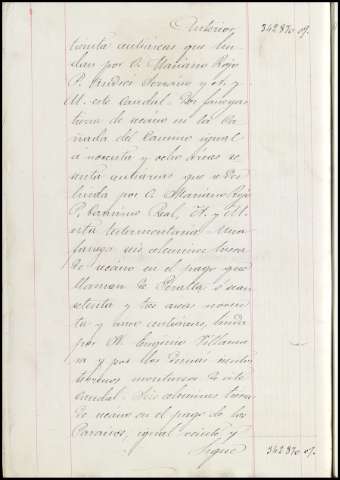 Anterior 342.870 07.
treinta centiáreas que lin-
dan por O. Mariano Rojo
P. Andrés Serrano y N. y
M. este caudal. Dos fanegas
tierra de secano en la Ca-
ñada del Camino igual
á noventa y ocho áreas se-
senta centiareas que se des-
linda por O. Mariano Rojo
P. Camino Real, N. y M.
esta testamentaria. Una
fanega seis celemines tierra
de secano en el pago que
llaman de Peralta, ó sean
setenta y tres areas noven-
ta y cinco centiáreas, linda
por M. Eugenio Villanue-
va y por los demas vientos
terrenos montuosos de este
caudal. Seis celemines tierra
de secano en el pago de los
igual veinte y
Sigue 342.870 07.